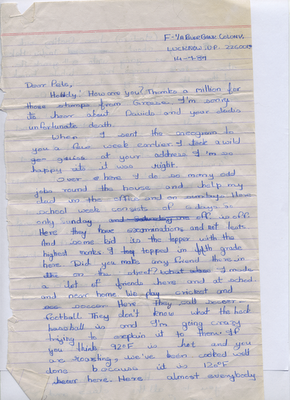 LUCKNOW. U.P. 226006
14-7-89
Dear Pete,
Howdy! How are you? Thanks a million for
those stamps from Greece. I'm sorry
to hear about Davids and your dads
unfortunate death.
When I sent the aerogram to
you a few week earlier I took a wild
guess at your address I'm so
happy it was right.
Over here I do so many odd
jobs round the house and help my
dad in the office and on
school week consists of 6 days &
only sunday off is off.
Here they have examinations and not tests.
And some kid is the topper with the
highest marks. I topped in fifth grade
here. Did you make any friend there in
I made
a lot of friends here and at school
and near home. We play cricket and
soccer. Here they call soccer
football. They don't know what the heck
baseball is and I'm going crazy
trying to explain it to them. If
you think 92°F is hot and you
are roasting, we've been cooked well
done because it is 120°F
here. Here almost everybody